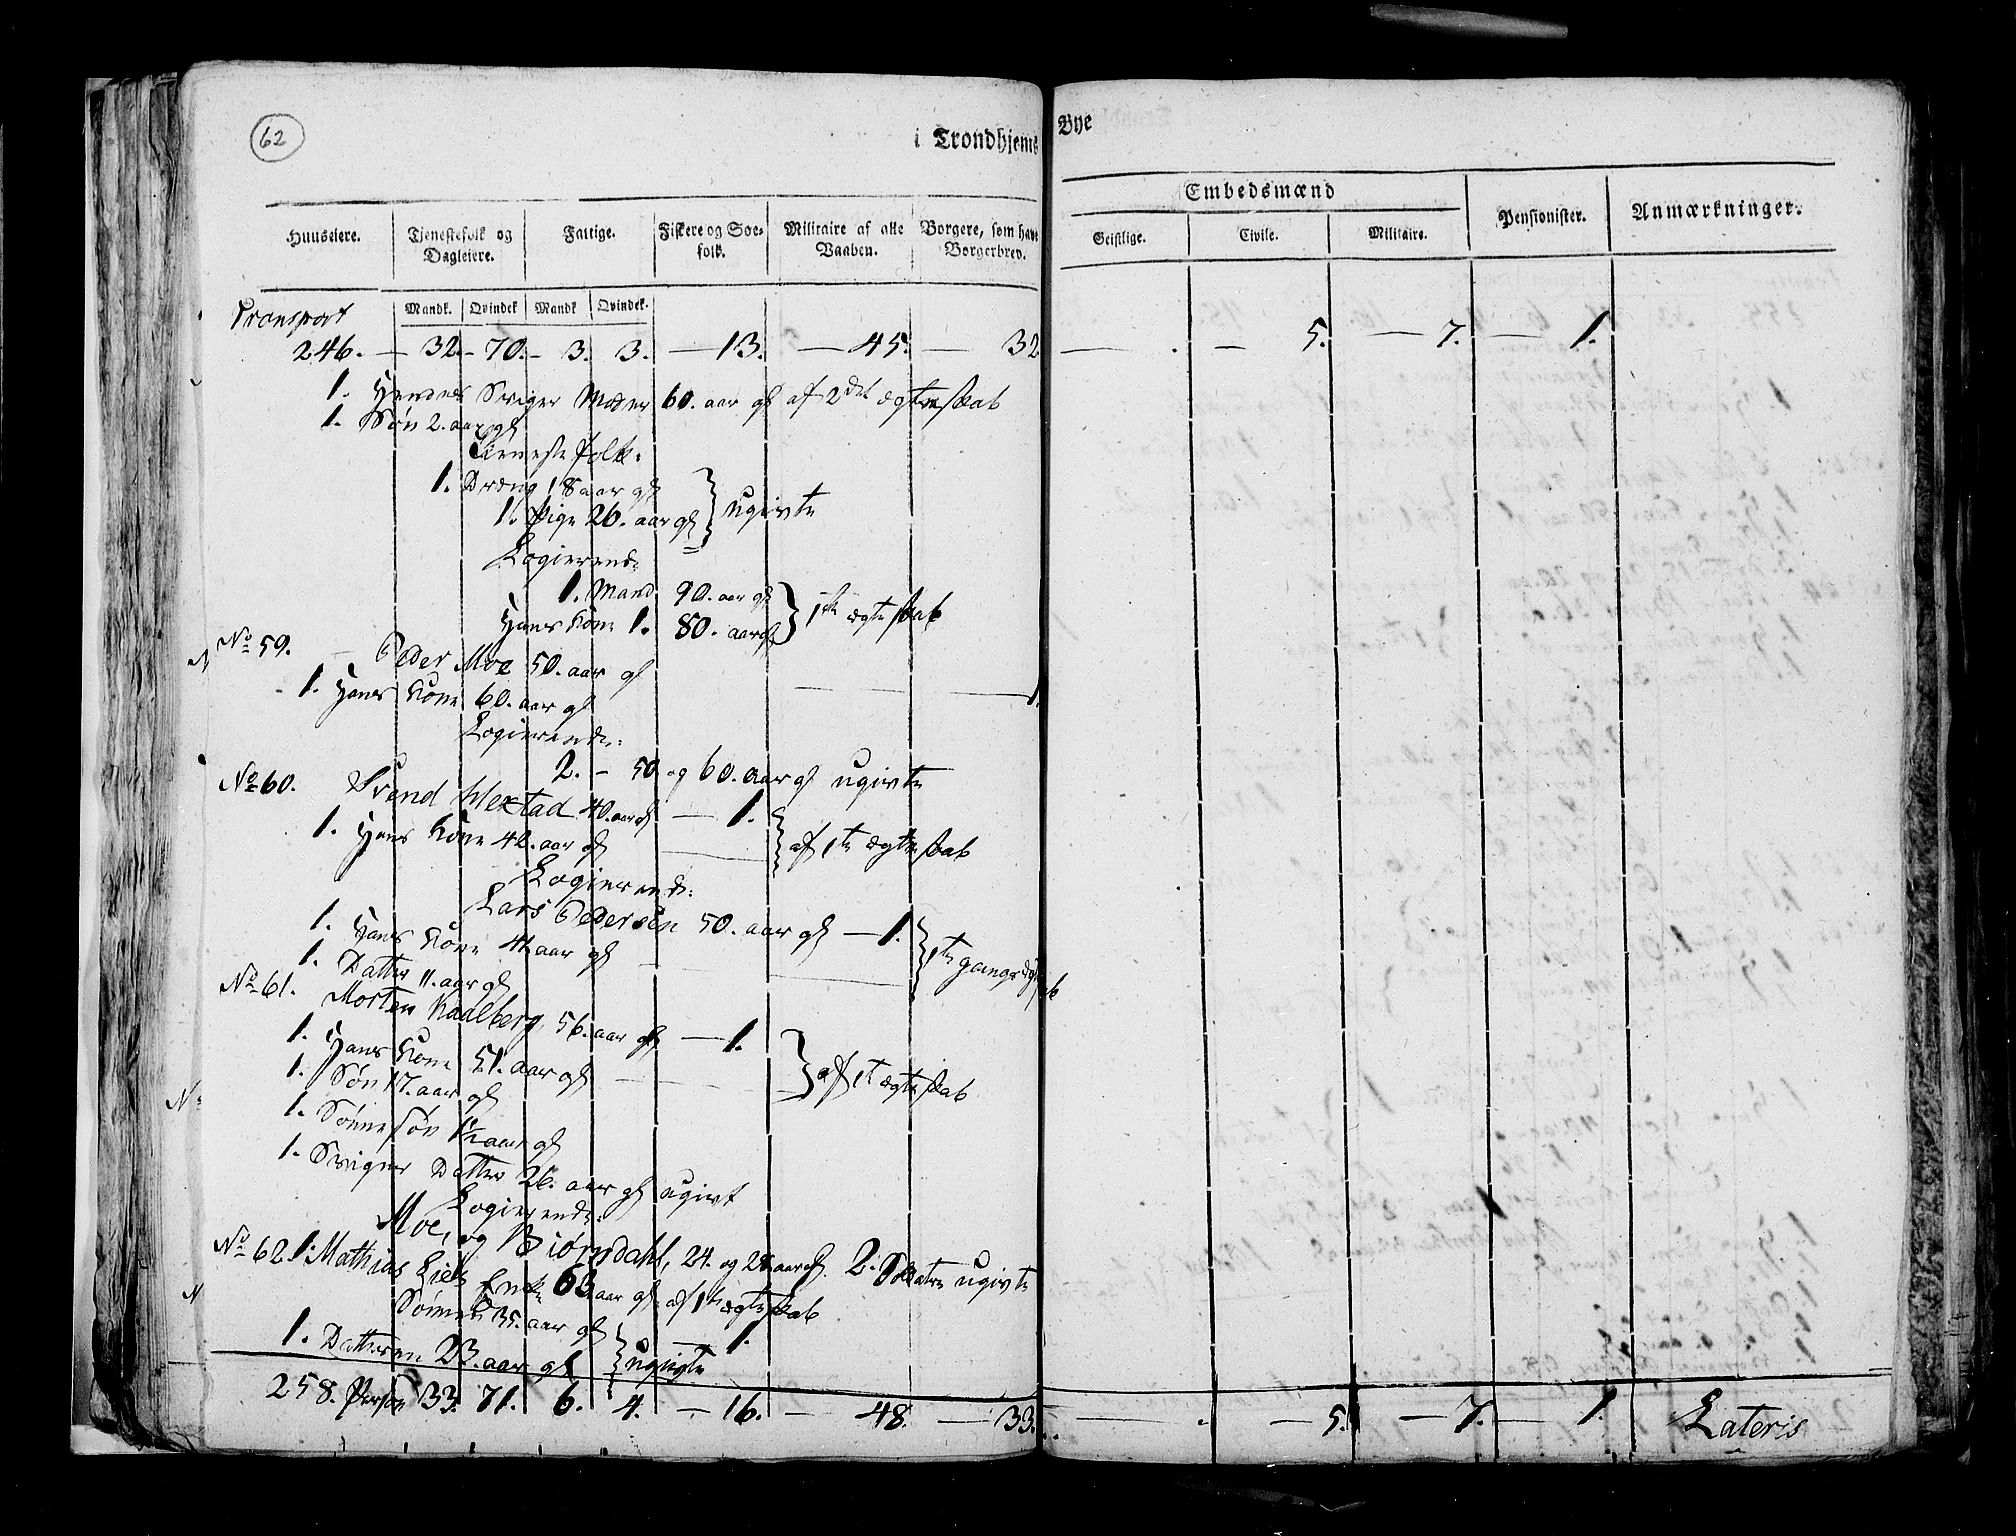 62
i Trondhjems Bye
Huuseiere. Tjenestefolk og Dagleiere. Fattige. Fiskere og Søefolk. Militaire af alle Vaaben. Borgere, som have Borgerbrev. Embedsmænd Geistlige. Civile. Militaire. Pensionister. Anmærkninger.
Mandk. Qvindek Mandk Qvindek.
Transport
246. — 32. — 70. — 3. 3. — 13. — 45. — 32 — . — 5. — 7. — 1.
1. Hendes Sviger Moder 60. aar gl af 2det ægteskab
1. Søn 2. aar gl
Tieneste folk:
1. Dreng 18 aar gl
1. Pige 26. aar gl } ugivte
Logierende
1. Mand 90. aar gl
Hans Kone 1. 80. aar gl } 1ste ægteskab
No 59. Peder Moe 50. aar gl
1. Hans Kone 60. aar gl — 1
Logierende:
2. – 50 og 60. aar gl ugivte
No 60. Svend Hextad 40. aar gl — 1.
1. Hans Kone 42. aar gl } af 1te ægteskab
Logierende:
Lars Pedersen 50. aar gl — 1.
1. Hans Kone 44 aar gl
1. Datter 11. aar gl } 1te gangs
No 61. Morten Kaalberg 56. aar gl — 1.
1. Hans Kone 51. aar gl
1. Søn 17. aar gl } af 1te ægteskab
1. Sønnesøn 1½ aar gl
1. Sviger Datter 26. aar gl ugivt
Logierende:
Moe, og Biørndahl, 24. og 28 aar gl. 2. Soldater ugivte
No 62. 1. Mathias Enke 63 aar gl af 1te ægteskab
Sønnen 35. aar gl — 1.
1. Datteren 23. aar gl } ugivte
258. Person 33. 71. 6. 4. — 16. — 48. — 33. — . — 5. — 7. — 1. Lateris